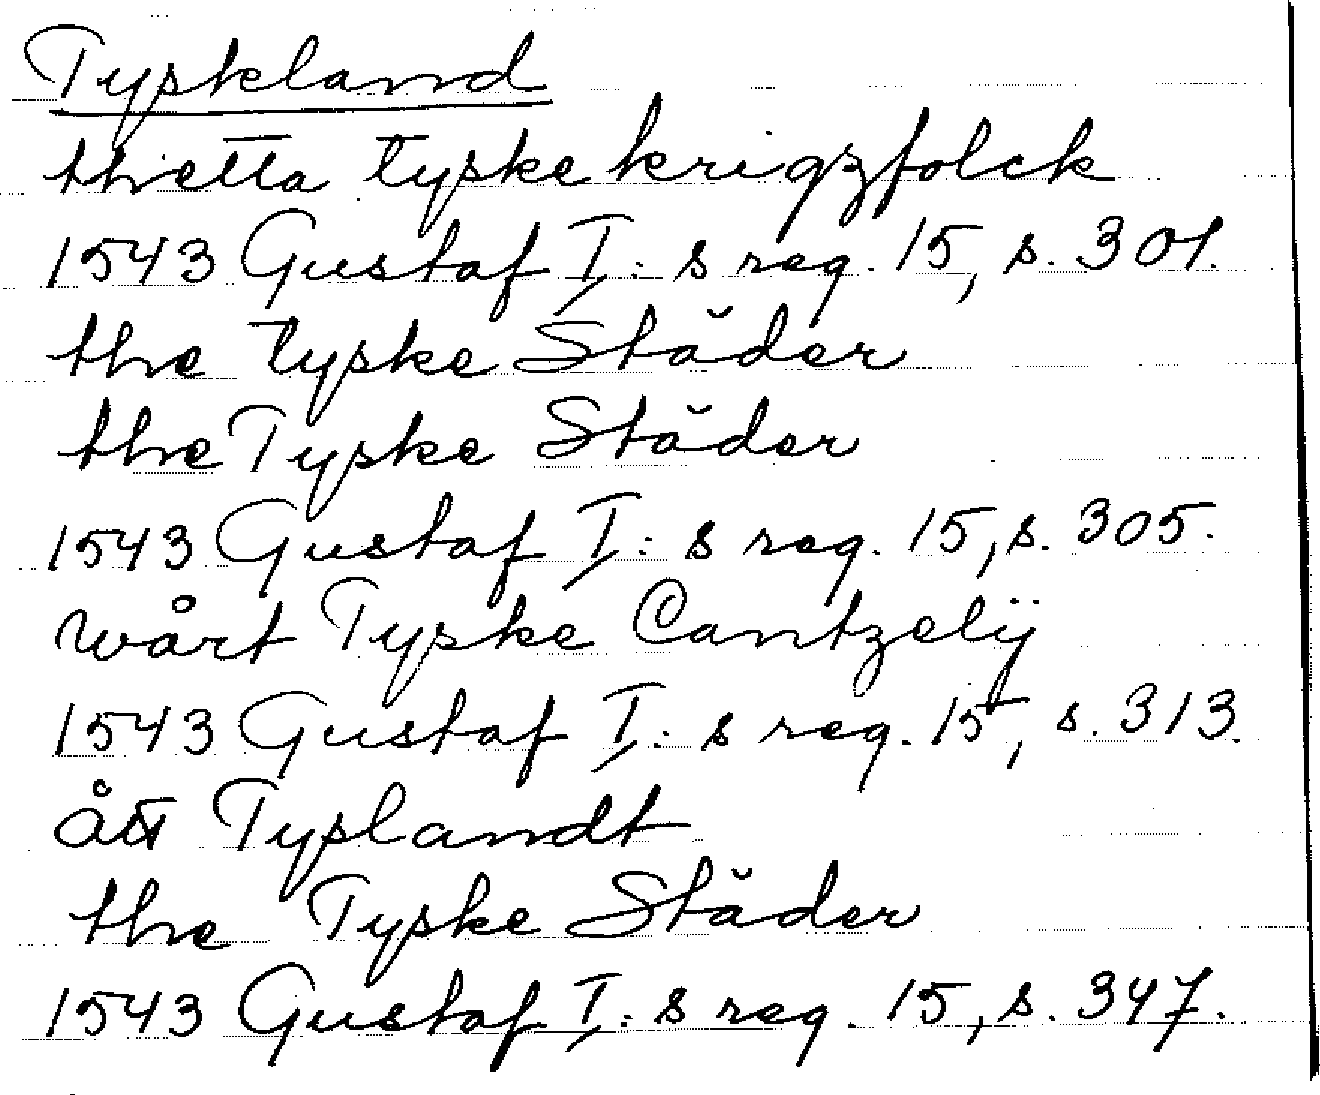 Tyskland
thetta tyske krigzfolck
1543 Gustaf I: s reg. 15, s. 301.
the tyske Städer
the Tyske Städer
1543 Gustaf I: s reg. 15, s. 305.
wårt Tyske Cantzelÿ
1543 Gustaf I: s reg. 15, s. 313.
ått Tyslandt
the Tyske Städer
1543 Gustaf I: s reg. 15, s. 347.